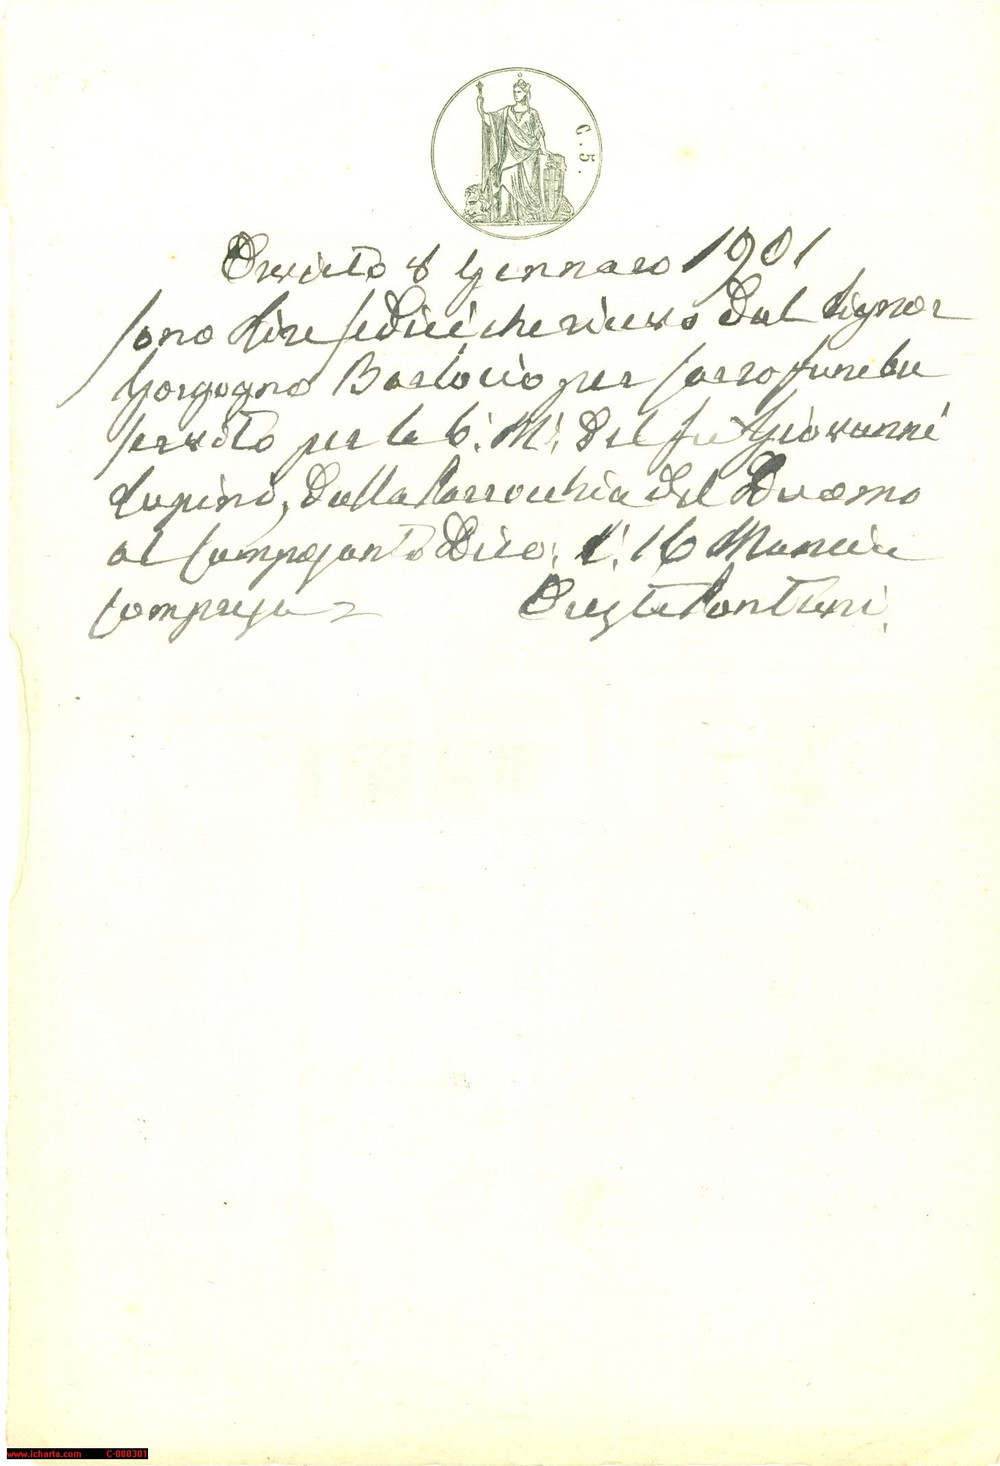 C. 5.
Orvieto 8 Gennaro 1901
Sono Lire sedici che ricevo dal Signor
Gorgogno Bartocio per Carro funebre
servito per la b: M: del fu Giovanni
Lupini, dalla Parrocchia del Duomo
al Camposanto Dico: L: 16 Mancia
Compresa =
Oreste Pontani
www.icharta.com C-000301